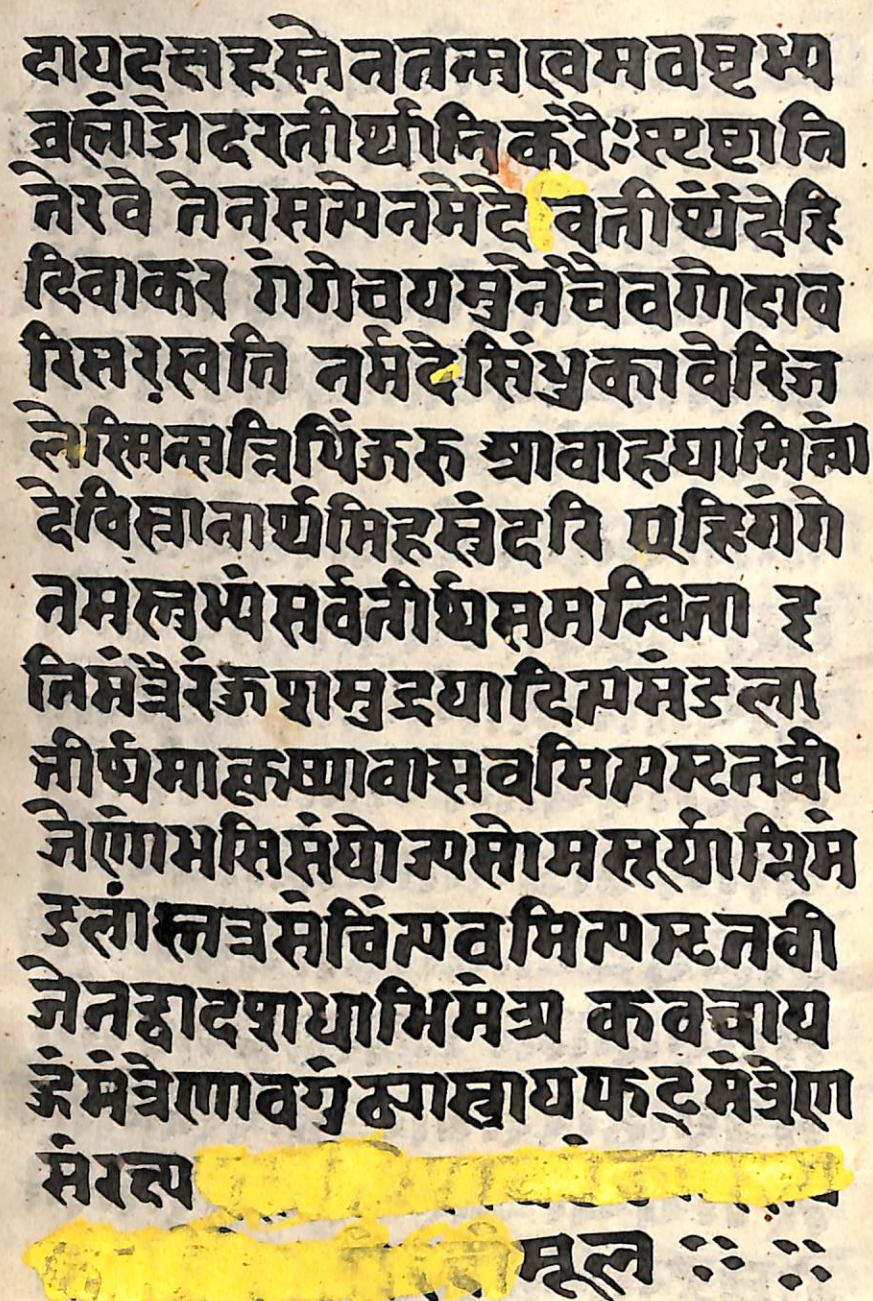 दायदक्षहस्तेनतन्मखेमवष्टभ्य
ब्रह्मांडोदरतीर्थानिकरैःस्पृष्टानि
तेरवे तेनसत्येनमेदेवतीर्थंदेहि
दिवाकर गंगेचयमुनेचैवगोदाव
रिसरस्वति नर्मदेसिंधुकावेरिज
लेस्मिन्सन्निधिंकुरु आवाहयामित्वां
देविस्नानार्थमिहसुंदरि एहिगंगे
नमस्तुभ्यंसर्वतीर्थसमन्विता इ
तिमंत्रैरंकुशमुद्रयादित्यमंडला
तीर्थमाकृष्यावाह्यवमित्यमृतवी
जेणांभसिसंयोज्यसोमसूर्याग्निमं
डलांस्तत्रसंचिंत्यवमित्यमृतवी
जेनद्वादशधाभिमंत्र्य कवचाय
हुंमंत्रेणावगुंठ्यास्त्रायफट्मंत्रेण
संरक्ष्य
मूल